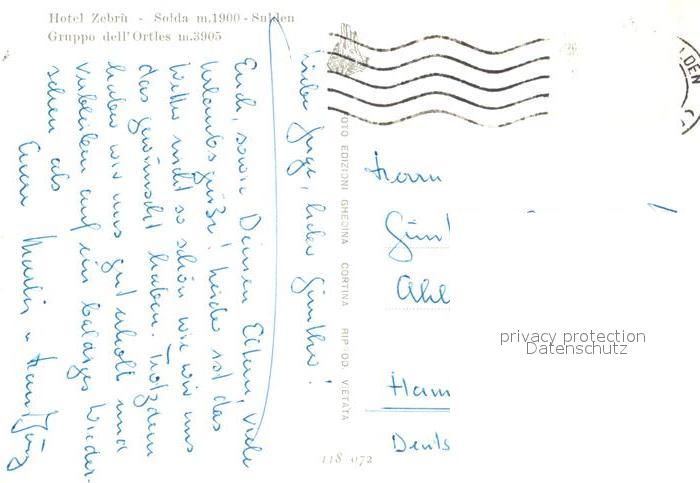 Hotel Zebrù - Solda m.1900 - Sulden
Gruppo dell'Ortles m.3905
Liebe Inge, lieber Günther!
Euch, sowie Deinen Eltern, viele
Urlaubsgrüße! Leider ist das
Wetter nicht so schön wie wir uns
das gewünscht haben. Trotzdem
haben wir uns gut erholt und
verbleiben auf ein baldiges Wieder-
sehen als
Eure
FOTO EDIZIONI GHEDINA CORTINA RIP. OD. VIETATA
LDEN
Herrn
Günt
Ham
Deuts
privacy protection
Datenschutz
118-072